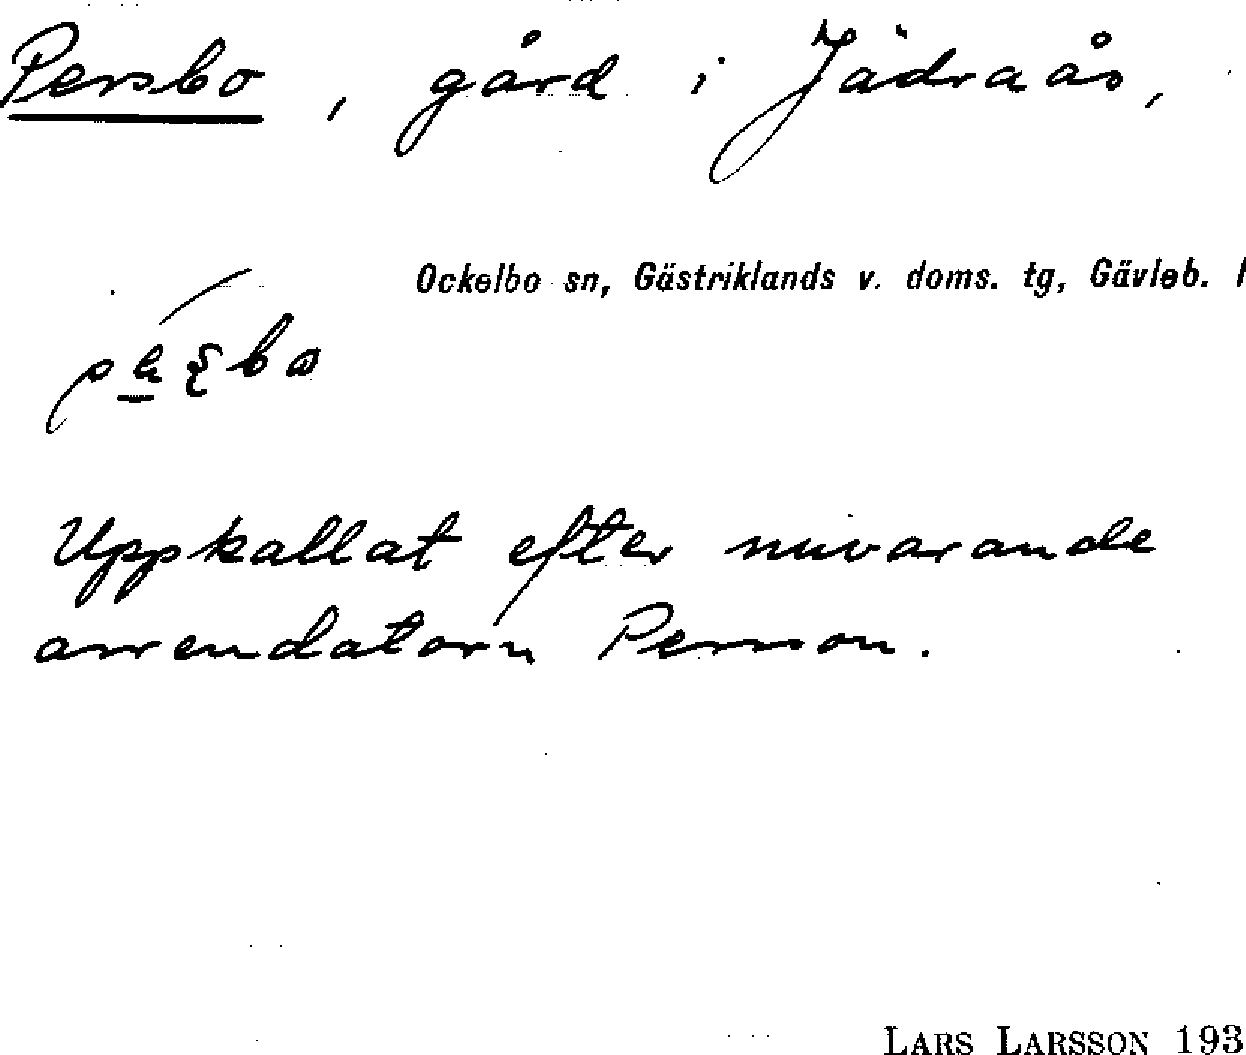 Persbo, gård i Jädraås,
Ockelbo sn, Gästriklands v. doms. tg, Gävleb.
Uppkallat efter nuvarande
arrendatorn Persson.
LARS LARSSON 193